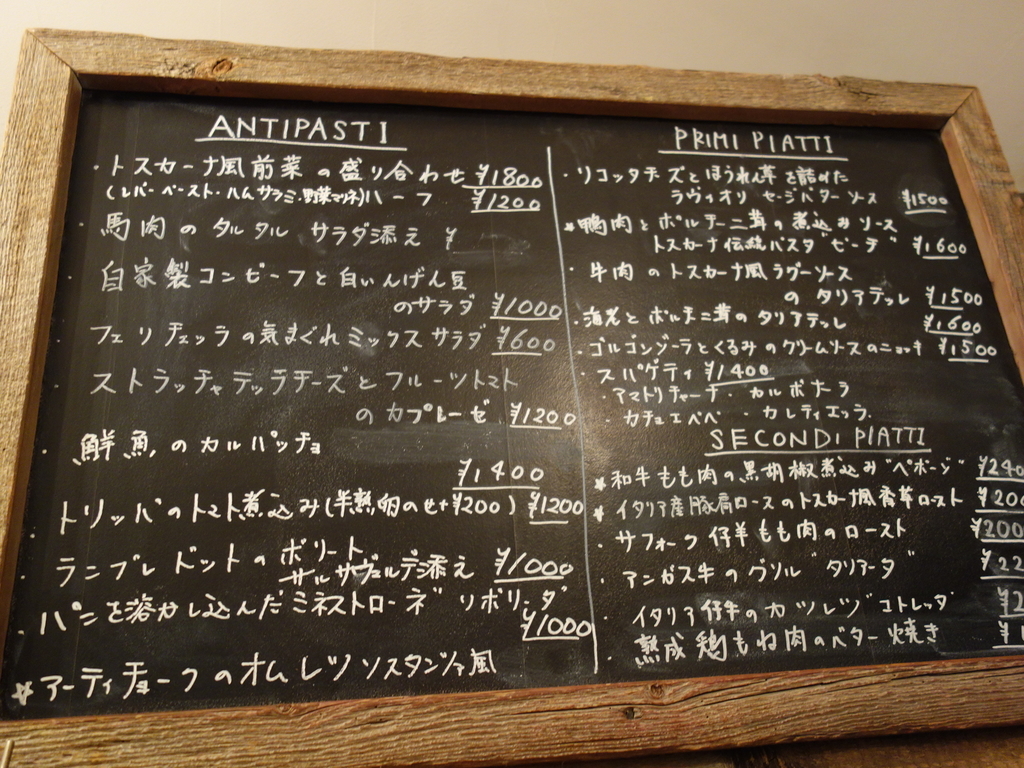 ANTIPASTI
・トスカーナ風前菜の盛り合わせ ¥1800
(レバーペースト・ハム サラミ・野菜マリネ)ハーフ ¥1200
・馬肉のタルタル サラダ添え ¥
・自家製コンビーフと白いんげん豆
のサラダ ¥1000
・フェリチェッラの気まぐれミックスサラダ ¥600
・ストラッチャテッラチーズとフルーツトマト
のカプレーゼ ¥1200
・鮮魚のカルパッチョ
¥1400
・トリッパのトマト煮込み(半熟卵のせ+¥200) ¥1200
・ランプレドットのボリート
サルサヴェルデ添え ¥1000
・パンを溶かし込んだミネストローネ゛リボリータ゛
¥1000
★アーティチョークのオムレツ
PRIMI PIATTI
・リコッタチーズとほうれん草を詰めた
ラヴィオリ セージバターソース ¥1500
★鴨肉とポルチーニ茸の煮込みソース
トスカーナ伝統パスタ゛ピーチ゛ ¥1600
・牛肉のトスカーナ風ラグーソース
のタリアテッレ ¥1500
・海老とポルチーニ茸のタリアテッレ ¥1600
・ゴルゴンゾーラとくるみのクリームソースのニョッキ ¥1500
・スパゲティ ¥1400
・アマトリチャーナ・カルボナーラ
・カチョエペペ ・カレティエッラ
SECONDI PIATTI
★和牛もも肉の黒胡椒煮込み゛ペポーゾ゛ ¥240
★イタリア産豚肩ロースのトスカーナ風香草ロースト ¥200
・サフォーク仔羊もも肉のロースト ¥200
・アンガス牛のグリル ゛タリアータ゛ ¥22
・イタリア仔牛のカツレツ゛コトレッタ゛ ¥2
・熟成鶏もね肉のバター焼き ¥1